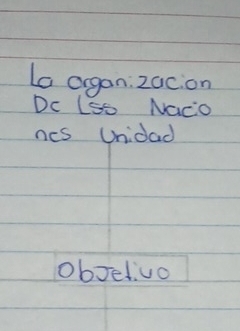 La organizacion
De Lss Nacio
nes Unidad
Objetivo